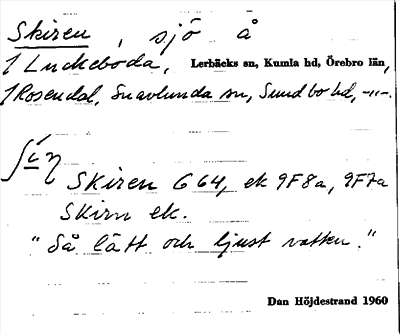 Skiren, sjö å
1 Luckeboda, Lerbäcks sn, Kumla hd, Örebro län,
1 Rosendal, Snavlunda sn, Sundbo hd, -"-.
Skiren G 64, ek 9F8a, 9F7a
Skirn ek.
"Så lätt och ljust vatten."
Dan Höjdestrand 1960